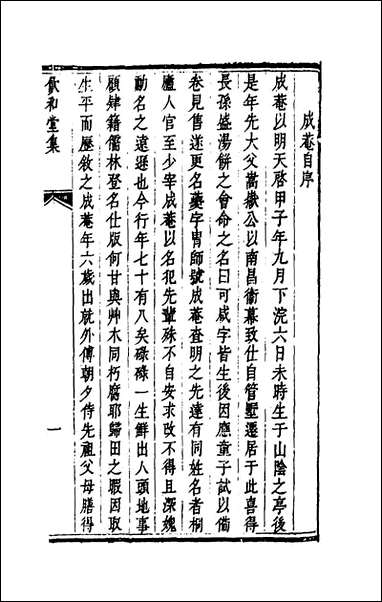 成菴自序
成菴以明天啓甲子年九月下浣六日未時生于山陰之亭後
是年先大父嵩嶽公以南昌衛幕致仕自管墅遷居于此喜得
長孫盛湯餅之會命之名曰可咸字皆生後因應童子試以備
卷見售遂更名夔字胄師號成菴查明之先達有同姓名者桐
廬人官至少宰成菴以名犯先輩殊不自安求改不得且深媿
勳名之遠遜也今行年七十有八矣碌碌一生鮮出人頭地事
顧肄籍儒林登名仕版何甘與艸木同朽腐耶歸田之暇因取
生平而歷敘之成菴年六歲出就外傅朝夕侍先祖父母膝得
飲和堂集
一